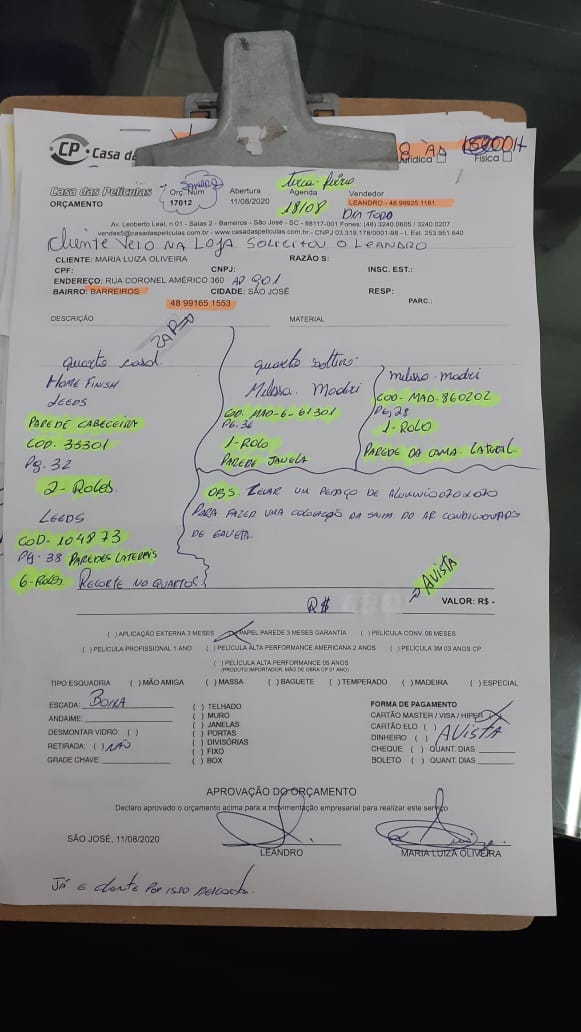 CP Casa da
8 às 18:00H
Jurídica Física
Casa das Películas
ORÇAMENTO
Orç. Num
17012
Abertura
11/08/2020
terça-feira
Agenda
18/08
Vendedor
LEANDRO - 48 99925 1181
DIA TODO
Av. Leoberto Leal, n 01 - Salas 2 - Barreiros - São José - SC - 88117-001 Fones: (48) 3240.0605 / 3240.0207
vendas5@casadaspeliculas.com.br - www.casadaspeliculas.com.br - CNPJ 03.319.178/0001-98 - I. Est. 253.951.640
Cliente veio na loja solicitou o Leandro
CLIENTE: MARIA LUIZA OLIVEIRA RAZÃO S:
CPF: CNPJ: INSC. EST.:
ENDEREÇO: RUA CORONEL AMÉRICO 360 AP 901
BAIRRO: BARREIROS CIDADE: SÃO JOSÉ RESP:
48 99165 1553 PARC.:
DESCRIÇÃO MATERIAL
quarto casal.
HOME FINISH
LEEDS
PAREDE CABECEIRA
COD. 35301
Pg. 32
2-Rolos
LEEDS
COD-104873
Pg-38 PAREDES LATERAIS
6-Rolos RECORTE NO QUARTOS
quarto solteiro:
Melissa. Madri
COD. MAD-6-61301
Pg. 36
1-ROLO
PAREDE JANELA
melissa-madri
COD-MAD.860202
Pg,28
1-ROLO
PAREDE DA CAMA. LATERAL
OBS. LEVAR UM PEDAÇO DE ALUMINIO 020X020
PARA FAZER UMA COLOCAÇÃO DA SAIDA DO AR CONDICIONADO
DE GAVETA.
AVISTA
R$ VALOR: R$ -
( ) APLICAÇÃO EXTERNA 3 MESES (X) PAPEL PAREDE 3 MESES GARANTIA ( ) PELÍCULA CONV. 06 MESES
( ) PELÍCULA PROFISSIONAL 1 ANO ( ) PELÍCULA ALTA PERFORMANCE AMERICANA 2 ANOS ( ) PELÍCULA 3M 03 ANOS CP
( ) PELÍCULA ALTA PERFORMANCE 05 ANOS
(PRODUTO IMPORTADOR, MÃO DE OBRA CP 01 ANO)
TIPO ESQUADRIA ( ) MÃO AMIGA ( ) MASSA ( ) BAGUETE ( ) TEMPERADO ( ) MADEIRA ( ) ESPECIAL
ESCADA: BOINA
ANDAIME:
DESMONTAR VIDRO: ( )
RETIRADA: ( ) NÃO
GRADE CHAVE:
( ) TELHADO
( ) MURO
( ) JANELAS
( ) PORTAS
( ) DIVISÓRIAS
( ) FIXO
( ) BOX
FORMA DE PAGAMENTO
CARTÃO MASTER / VISA / HIPER (X)
CARTÃO ELO ( )
DINHEIRO ( ) AVISTA
CHEQUE ( ) QUANT. DIAS:
BOLETO ( ) QUANT. DIAS
APROVAÇÃO DO ORÇAMENTO
Declaro aprovado o orçamento acima para a movimentação empresarial para realizar este serviço
SÃO JOSÉ, 11/08/2020
LEANDRO MARIA LUIZA OLIVEIRA
Já é cliente por isso desconto.